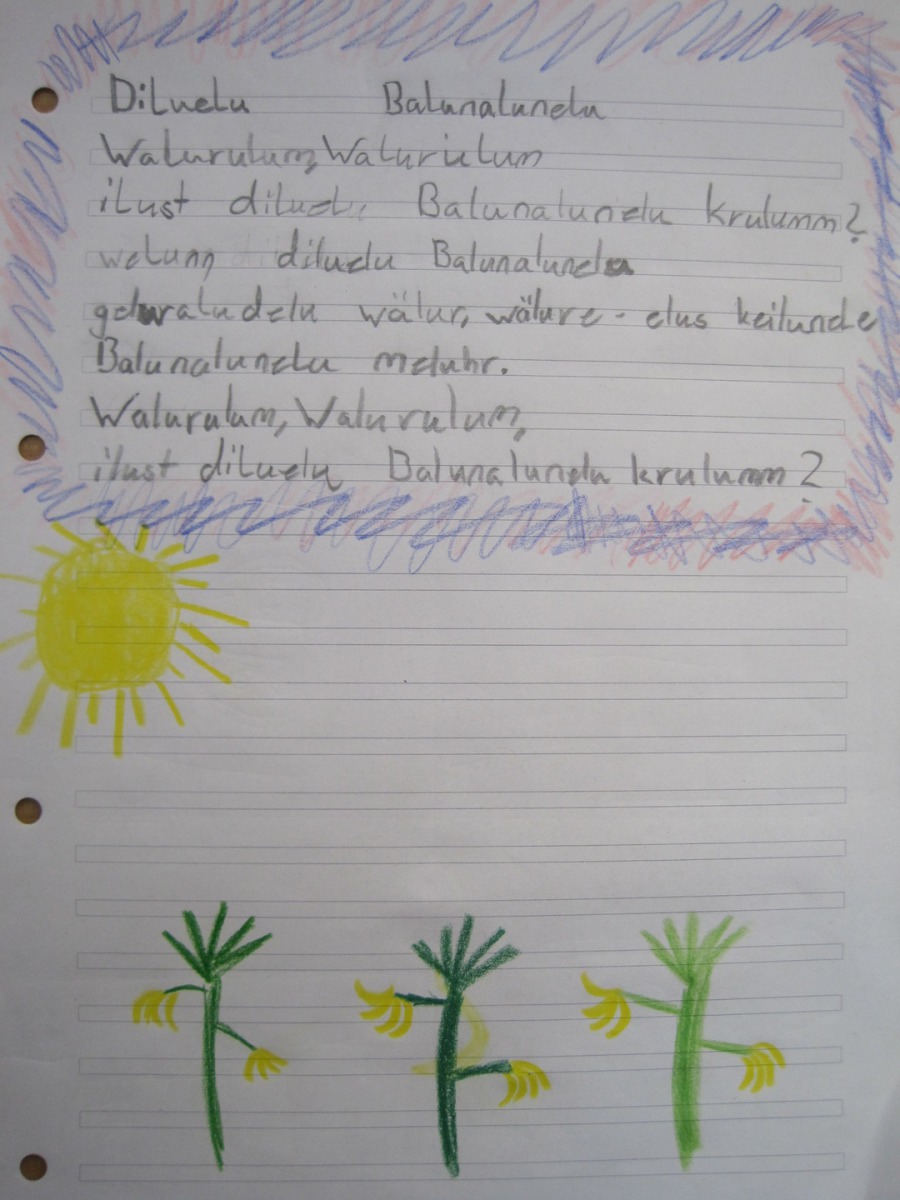 Diluelu Balunalunelu
Walurulum, Walurulum
ilust diluelu Balunalunelu krulumm?
welunn diluelu Balunalunelu
geluraludelu wälur, wälure - elus keilunde
Balunalunelu meluhr.
Walurulum, Walurulum,
ilust diluelu Balunalunelu krulumm?